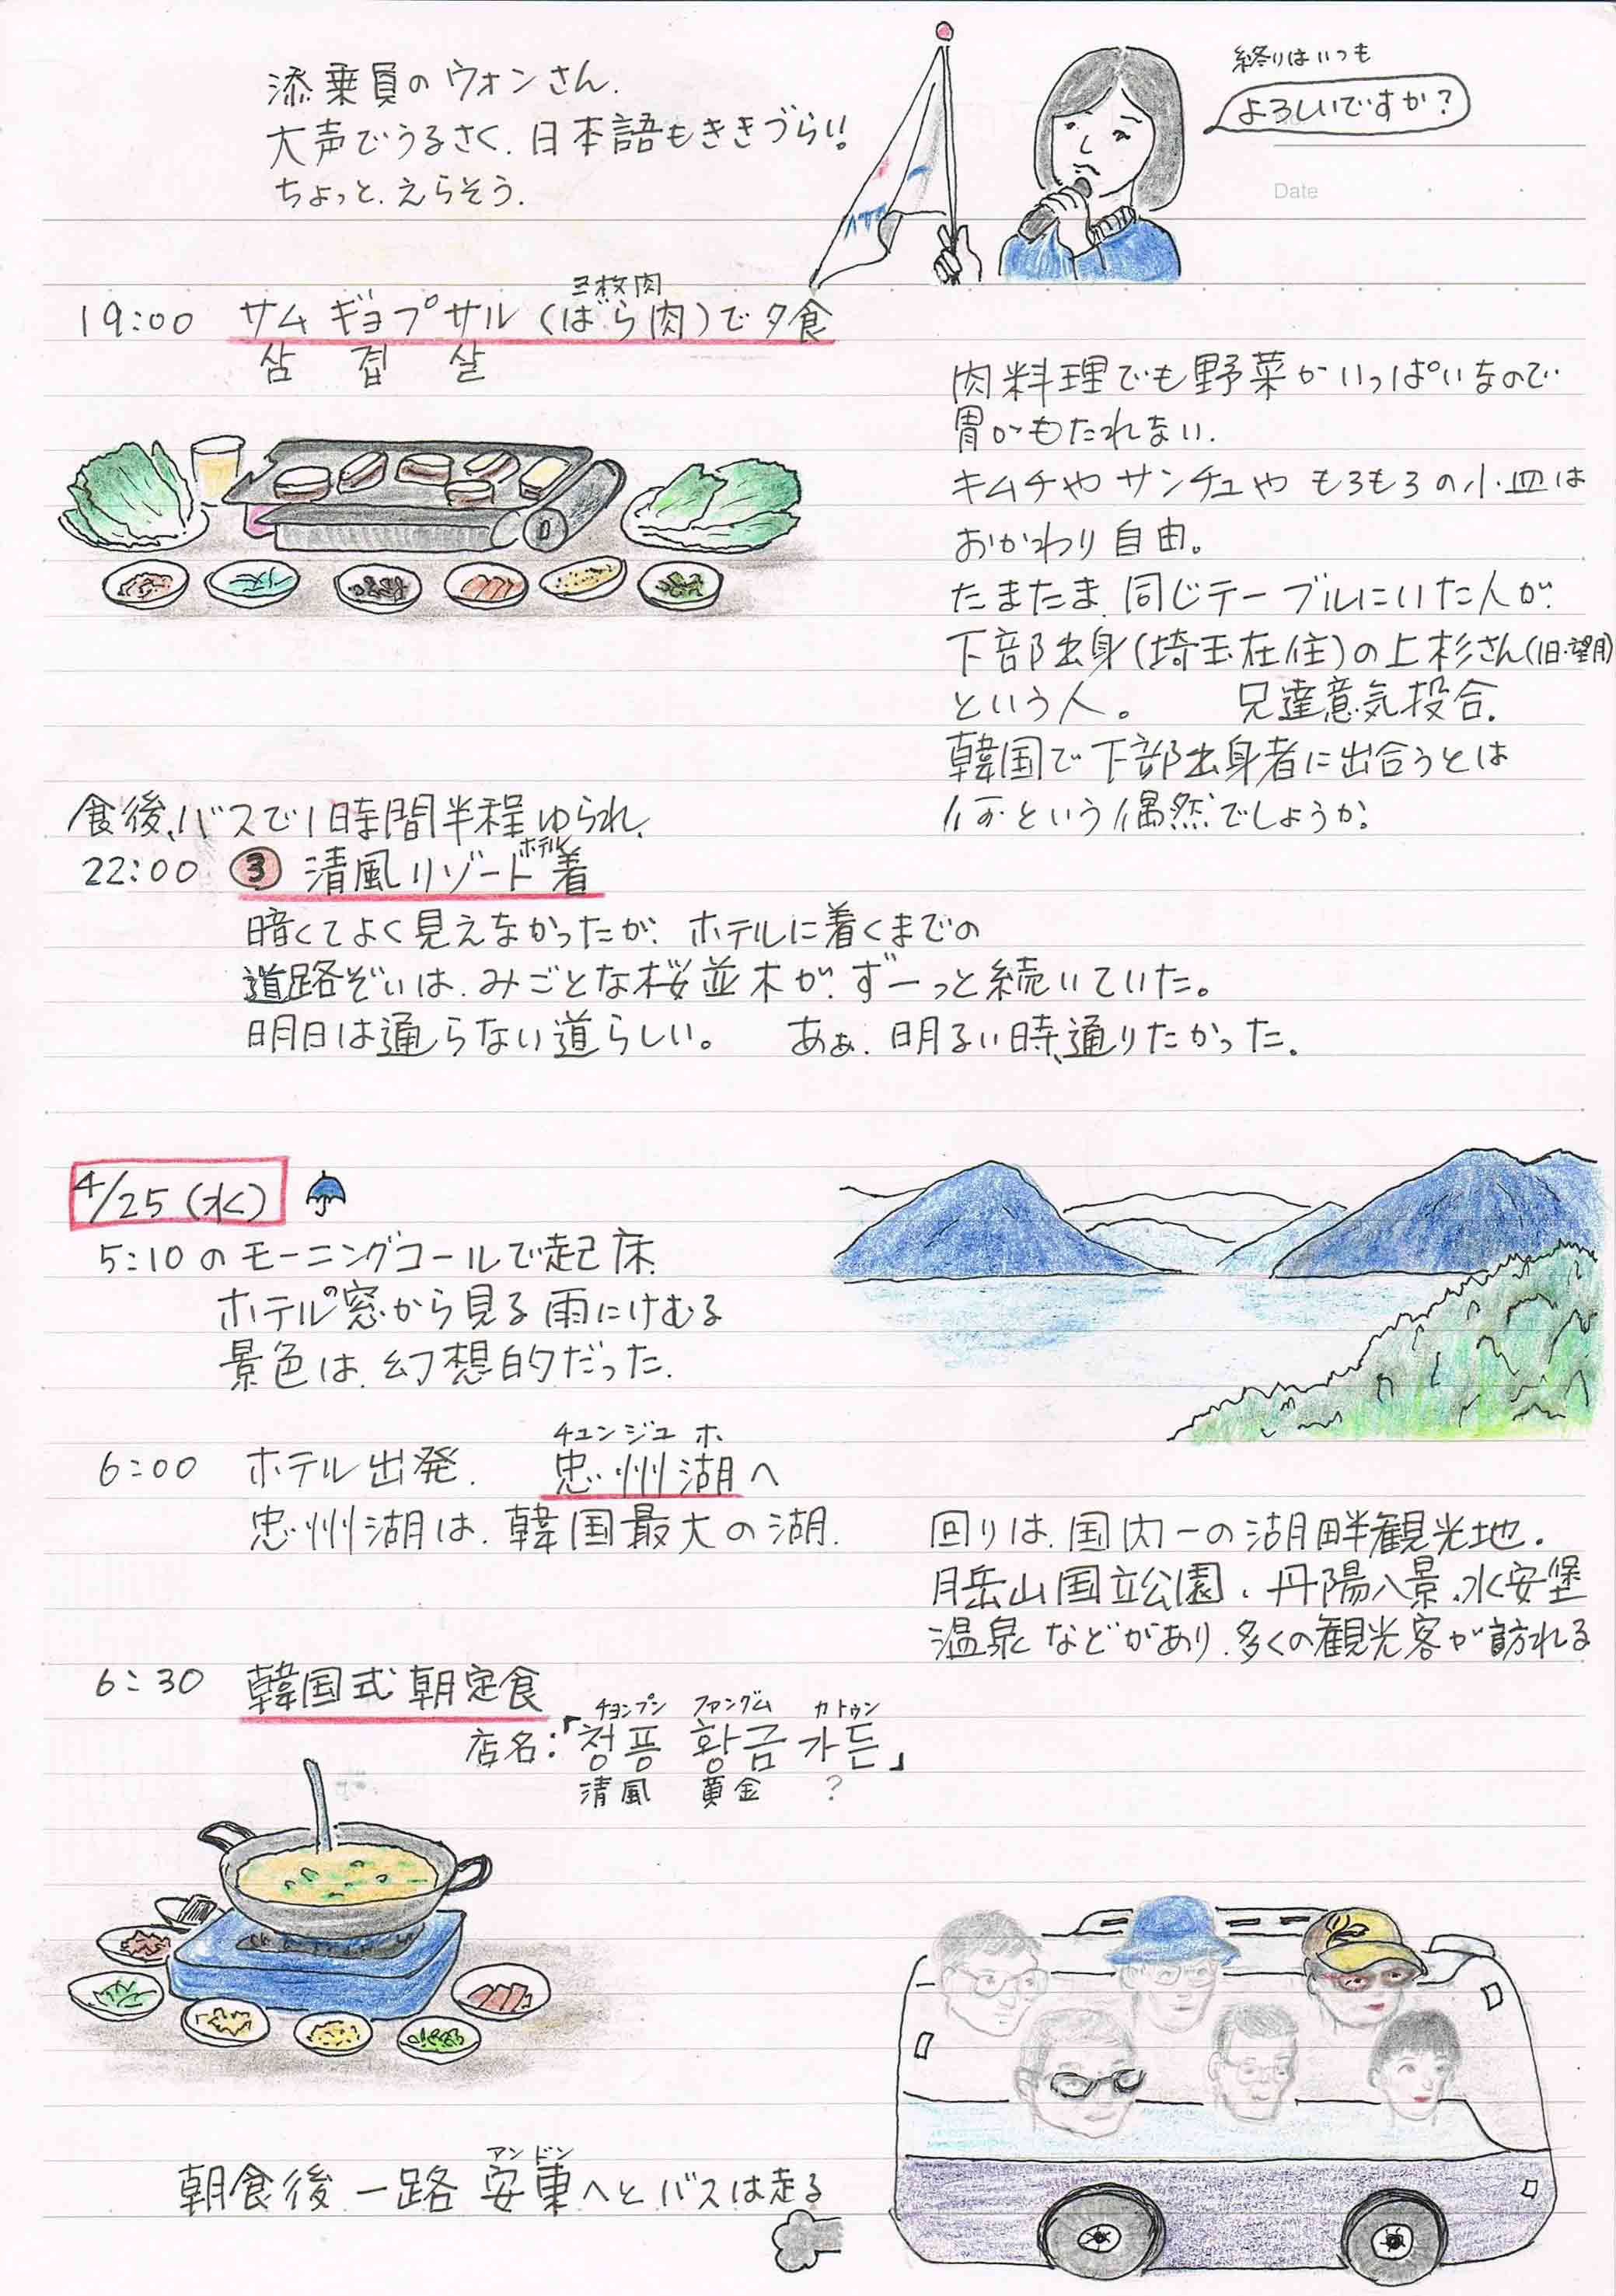 添乗員のウォンさん.
大声でうるさく、日本語もききづらい!
ちょっと、えらそう.
終りはいつも
よろしいですか?
Date
19:00 サムギョプサル(ばら肉)で夕食
三枚肉
삼 겹 살
肉料理でも野菜がいっぱいなので
胃がもたれない.
キムチやサンチュやもろもろの小皿は
おかわり自由。
たまたま、同じテーブルにいた人が、
下部出身(埼玉在住)の上杉さん(旧・望月)
という人。 兄達意気投合.
韓国で下部出身者に出合うとは
何という偶然でしょうか。
食後、バスで1時間半程ゆられ、
22:00 ③ 清風リゾート着
ホテル
暗くてよく見えなかったが、ホテルに着くまでの
道路ぞいは、みごとな桜並木が、ずーっと続いていた。
明日は通らない道らしい。 あぁ、明るい時、通りたかった.
4/25(水)
5:10のモーニングコールで起床.
ホテル窓から見る雨にけむる
景色は、幻想的だった.
チュンジュ ホ
6:00 ホテル出発. 忠州湖へ
忠州湖は、韓国最大の湖.
回りは、国内一の湖畔観光地.
月岳山国立公園、丹陽八景、水安堡
温泉などがあり、多くの観光客が訪れる
6:30 韓国式朝定食
チョンプン ファングム カトゥン
店名:「청풍 황금 가든」
清風 黄金 ?
アンドン
朝食後 一路 安東へとバスは走る